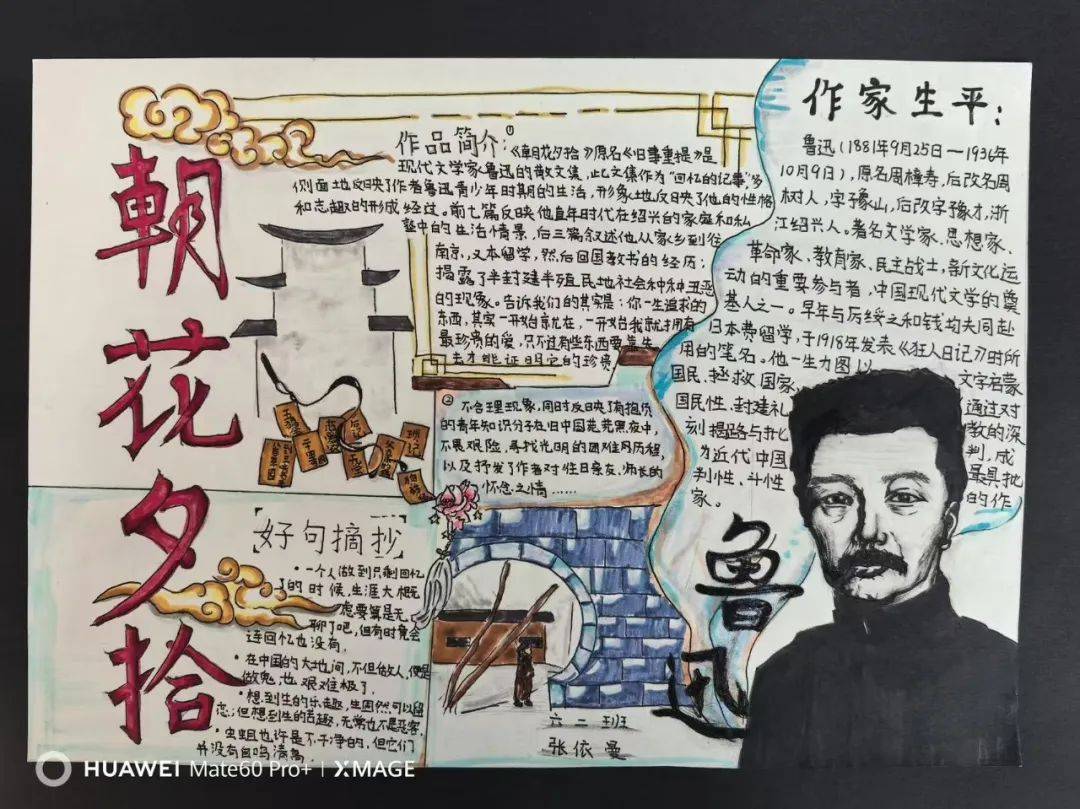 朝花夕拾
作品简介:①
《朝花夕拾》原名《旧事重提》是
现代文学家鲁迅的散文集,此文集作为“回忆的记事”多
侧面地反映了作者鲁迅青少年时期的生活,形象地反映了他的性格
和志趣的形成经过。前七篇反映他童年时代在绍兴的家庭和私
塾中的生活情景,后三篇叙述他从家乡到往
南京,又本留学,然后回国教书的经历;
揭露了半封建半殖民地社会种种丑恶
的现象。告诉我们的其实是:你一生追求的
东西,其实一开始就在,一开始我就拥有
最珍贵的爱,只不过有些东西要靠失
去才能证明它的珍贵
②不合理现象,同时反映了有抱负
的青年知识分子在旧中国茫茫黑夜中,
不畏艰险,寻找光明的困难历程,
以及抒发了作者对往日亲友,师长的
怀念之情……
作家生平:
鲁迅(1881年9月25日—1936年
10月9日),原名周樟寿,后改名周
树人,字豫山,后改字豫才,浙
江绍兴人。著名文学家、思想家、
革命家、教育家、民主战士,新文化运
动的重要参与者,中国现代文学的奠
基人之一。早年与厉绥之和钱均夫同赴
日本费留学,于1918年发表《狂人日记》时所
用的笔名。他一生力图以文字名蒙
国民、拯救国家通过对
国民性、封建礼教的深
刻揭路与批判,成
为近代中国最具批
判性、斗性的作
家。
好句摘抄
•一个人做到只剩回忆
的时候,生涯大概
要算是无
聊了吧,但有时竟会
连回忆也没有,
•在中国的大地间,不但做人,便是
做鬼,也艰难极了,
•想到生的乐趣,生固然可以留
恋;但想到生的苦趣,无常也不是恶客,
•虫蛆也许是不干净的,但它们
并没有自鸣清高
六二班
张依曼
鲁迅
HUAWEI Mate60 Pro+ | XMAGE